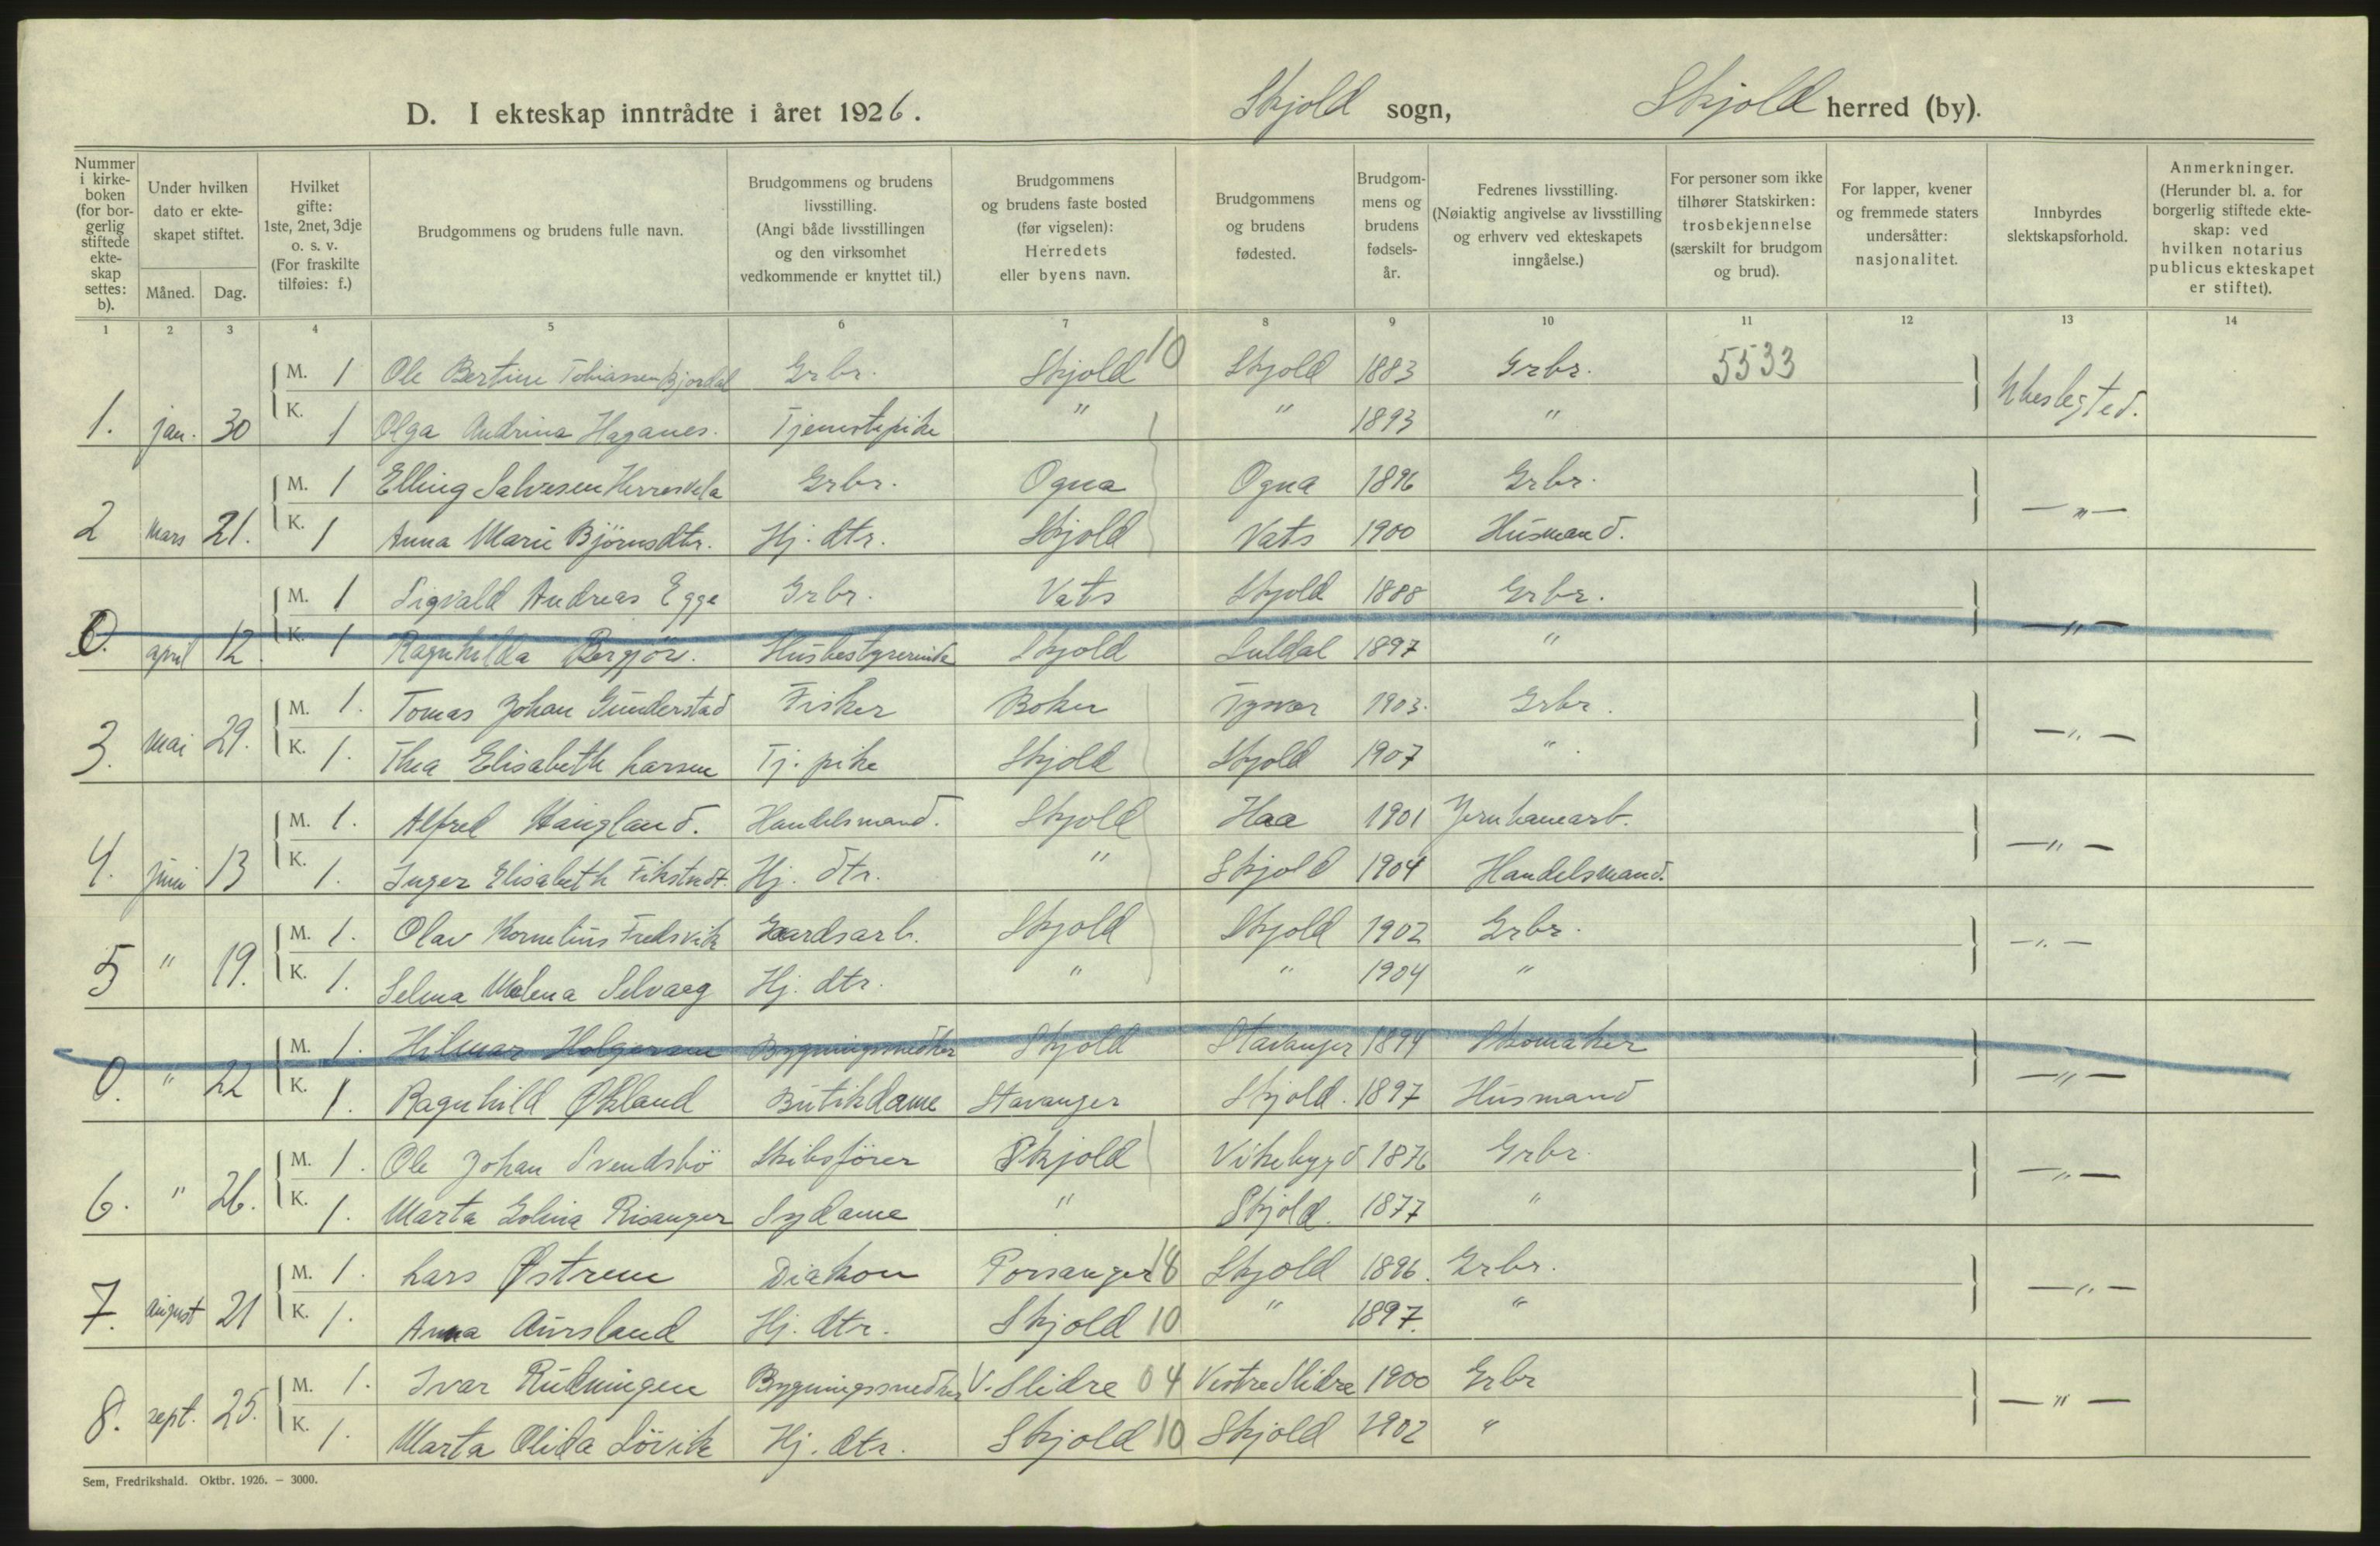 D. I ekteskap inntrådte i året 1926. Skjold sogn, Skjold herred (by).
Nummer i kirke-boken (for bor-gerlig stiftede ekte-skap settes: b).
Under hvilken dato er ekte-skapet stiftet.
Måned. Dag.
Hvilket gifte: 1ste, 2net, 3dje o. s. v. (For fraskilte tilføies: f.)
Brudgommens og brudens fulle navn.
Brudgommens og brudens livsstilling. (Angi både livsstillingen og den virksomhet vedkommende er knyttet til.)
Brudgommens og brudens faste bosted (før vigselen): Herredets eller byens navn.
Brudgommens og brudens fødested.
Brudgom-mens og brudens fødsels-år.
Fedrenes livsstilling. (Nøiaktig angivelse av livsstilling og erhverv ved ekteskapets inngåelse.)
For personer som ikke tilhører Statskirken: trosbekjennelse (særskilt for brudgom og brud).
For lapper, kvener og fremmede staters undersåtter: nasjonalitet.
Innbyrdes slektskapsforhold.
Anmerkninger. (Herunder bl. a. for borgerlig stiftede ekte-skap: ved hvilken notarius publicus ekteskapet er stiftet).
1 2 3 4 5 6 7 8 9 10 11 12 13 14
M. 1 Ole Bertin Tobiassen Bjordal Grbr. Skjold 10 Skjold 1883 Grbr. 5533
1. jan. 30 K. 1 Olga Andrina Haganes. Tjenestepike " " 1893 " Ubeslegted.
M. 1 Elling Salvesen Ogna Grbr. Ogna 1896 Grbr.
2 mars 21. K. 1 Anna Marie Björnsdtr. Hj. dtr. Skjold Vats 1900 Husmand. — " —
M. 1 Sigvald Andreas Egge Grbr. Vats Skjold 1888 Grbr.
0. april 12. K. 1 Ragnhilda Husbestyrerinde Skjold Suldal 1897 " — " —
M. 1. Tomas Johan Gunderstad Fisker Boken Tysvær 1903. Grbr.
3. mai 29. K. 1. Thea Elisabeth Larsen Tj. pike Skjold Skjold 1907 " — " —
M. 1. Alfred Haugland. Handelsmand. Skjold Haa 1901 Jernbanearb.
4. juni 13 K. 1. Inger Elisabeth Hj. dtr. " Skjold 1904 Handelsmand. — " —
M. 1. Olav Kornelius Fredsvik Gaardsarb. Skjold Skjold 1902 Grbr.
5 " 19. K. 1. Selma Malena Selvaag Hj. dtr. " " 1904 " — " —
M. 1. Hilmar Holgersen Bygningssnedker Skjold Stavanger 1894 Skomaker
0. " 22 K. 1. Ragnhild Økland Butikdame Stavanger Skjold. 1897 Husmand — " —
M. 1. Ole Johan Svendsbö Skibsförer Skjold Vikebygd 1876 Grbr.
6. " 26. K. 1. Marta Golina Risanger Sydame " Skjold. 1877 " — " —
M. 1. Lars Østrem Diakon Porsanger 18 Skjold 1896. Grbr.
7. august 21 K. 1. Anna Aursland Hj. dtr. Skjold 10 " 1897. " — " —
M. 1. Ivar Rudningen Bygningssnedker V. Slidre 04 Vestre Slidre 1900 Grbr
8. sept. 25. K. 1. Marta Olida Lövik Hj. dtr. Skjold 10 Skjold 1902 " — " —
Sem, Fredrikshald. Oktbr. 1926. – 3000.